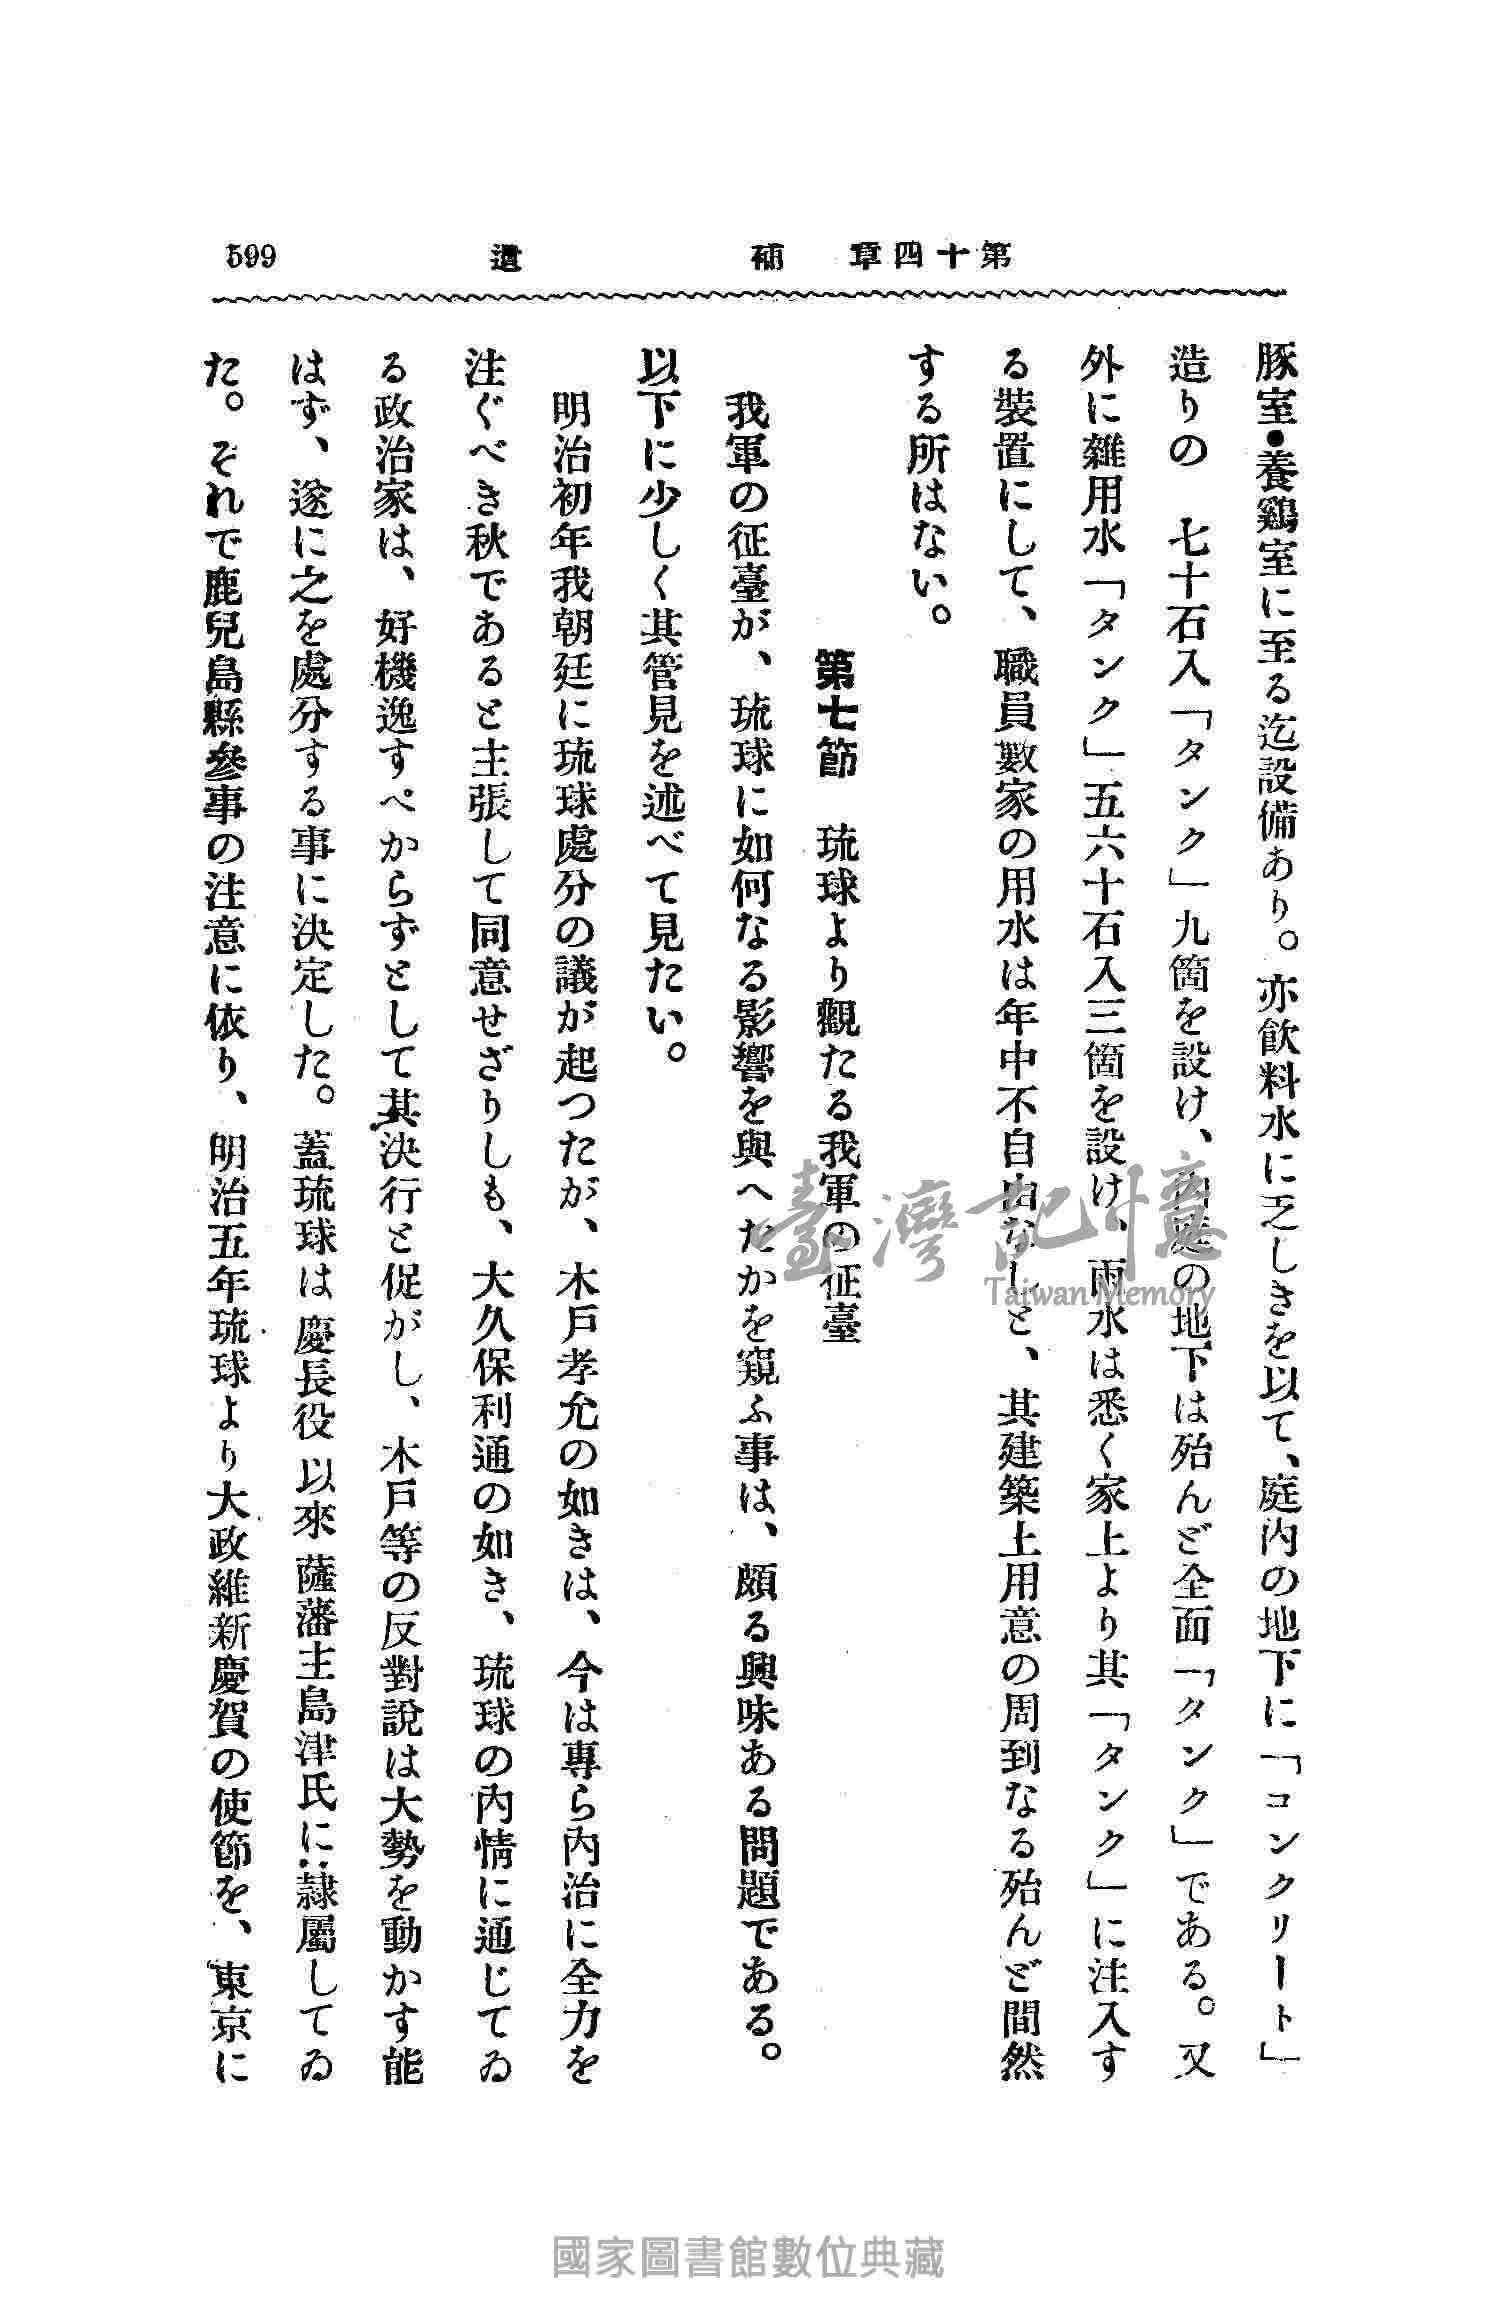 第十四章　補　遺　599
豚室●養鷄室に至る迄設備あり。亦飮料水に乏しきを以て、庭内の地下に「コンクリート」
造りの　七十石入「タンク」九箇を設け、内庭の地下は殆んど全面「タンク」である。又
外に雜用水「タンク」五六十石入三箇を設け、雨水は悉く家上より其「タンク」に注入す
る裝置にして、職員數家の用水は年中不自由なしと、其建築上用意の周到なる殆んど間然
する所はない。
第七節　琉球より觀たる我軍の征臺
我軍の征臺が、琉球に如何なる影響を與へたかを窺ふ事は、頗る興味ある問題である。
以下に少しく其管見を述べて見たい。
明治初年我朝廷に琉球處分の議が起つたが、木戸孝允の如きは、今は專ら內治に全力を
注ぐべき秋であると主張して同意せざりしも、大久保利通の如き、琉球の內情に通じてゐ
る政治家は、好機逸すべからずとして其決行と促がし、木戸等の反對說は大勢を動かす能
はず、遂に之を處分する事に決定した。蓋琉球は慶長役以來薩藩主島津氏に隷屬してゐ
た。それで鹿兒島縣參事の注意に依り、明治五年琉球より大政維新慶賀の使節を、東京に
臺灣記憶
Taiwan Memory
國家圖書館數位典藏